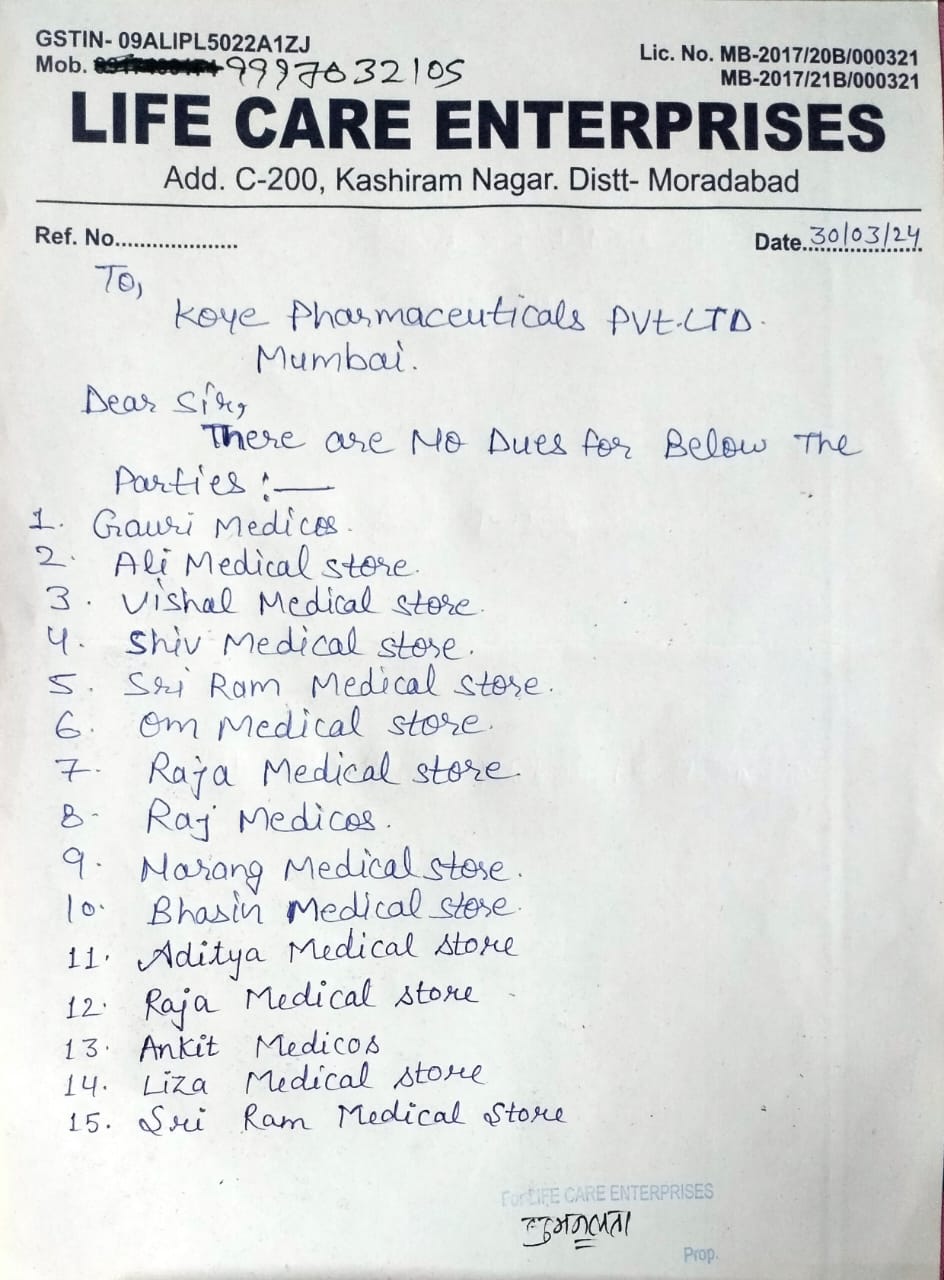 GSTIN- 09ALIPL5022A1ZJ
Lic. No. MB-2017/20B/000321
Mob. 9997032105
MB-2017/21B/000321
LIFE CARE ENTERPRISES
Add. C-200, Kashiram Nagar. Distt- Moradabad
Ref. No....................
Date..30/03/24
To,
Koye Pharmaceuticals PVt.LTD.
Mumbai.
Dear Sir,
There are No Dues for Below The
Parties :—
1. Gauri Medicos.
2. Ali Medical store.
3. Vishal Medical store.
4. Shiv Medical store.
5. Sri Ram Medical store.
6. Om Medical store.
7. Raja Medical store.
8- Raj Medicos.
9. Narang Medical store.
10. Bhasin Medical store.
11. Aditya Medical store
12. Raja Medical store
13. Ankit Medicos
14. Liza Medical store
15. Sri Ram Medical Store
For LIFE CARE ENTERPRISES
Prop.